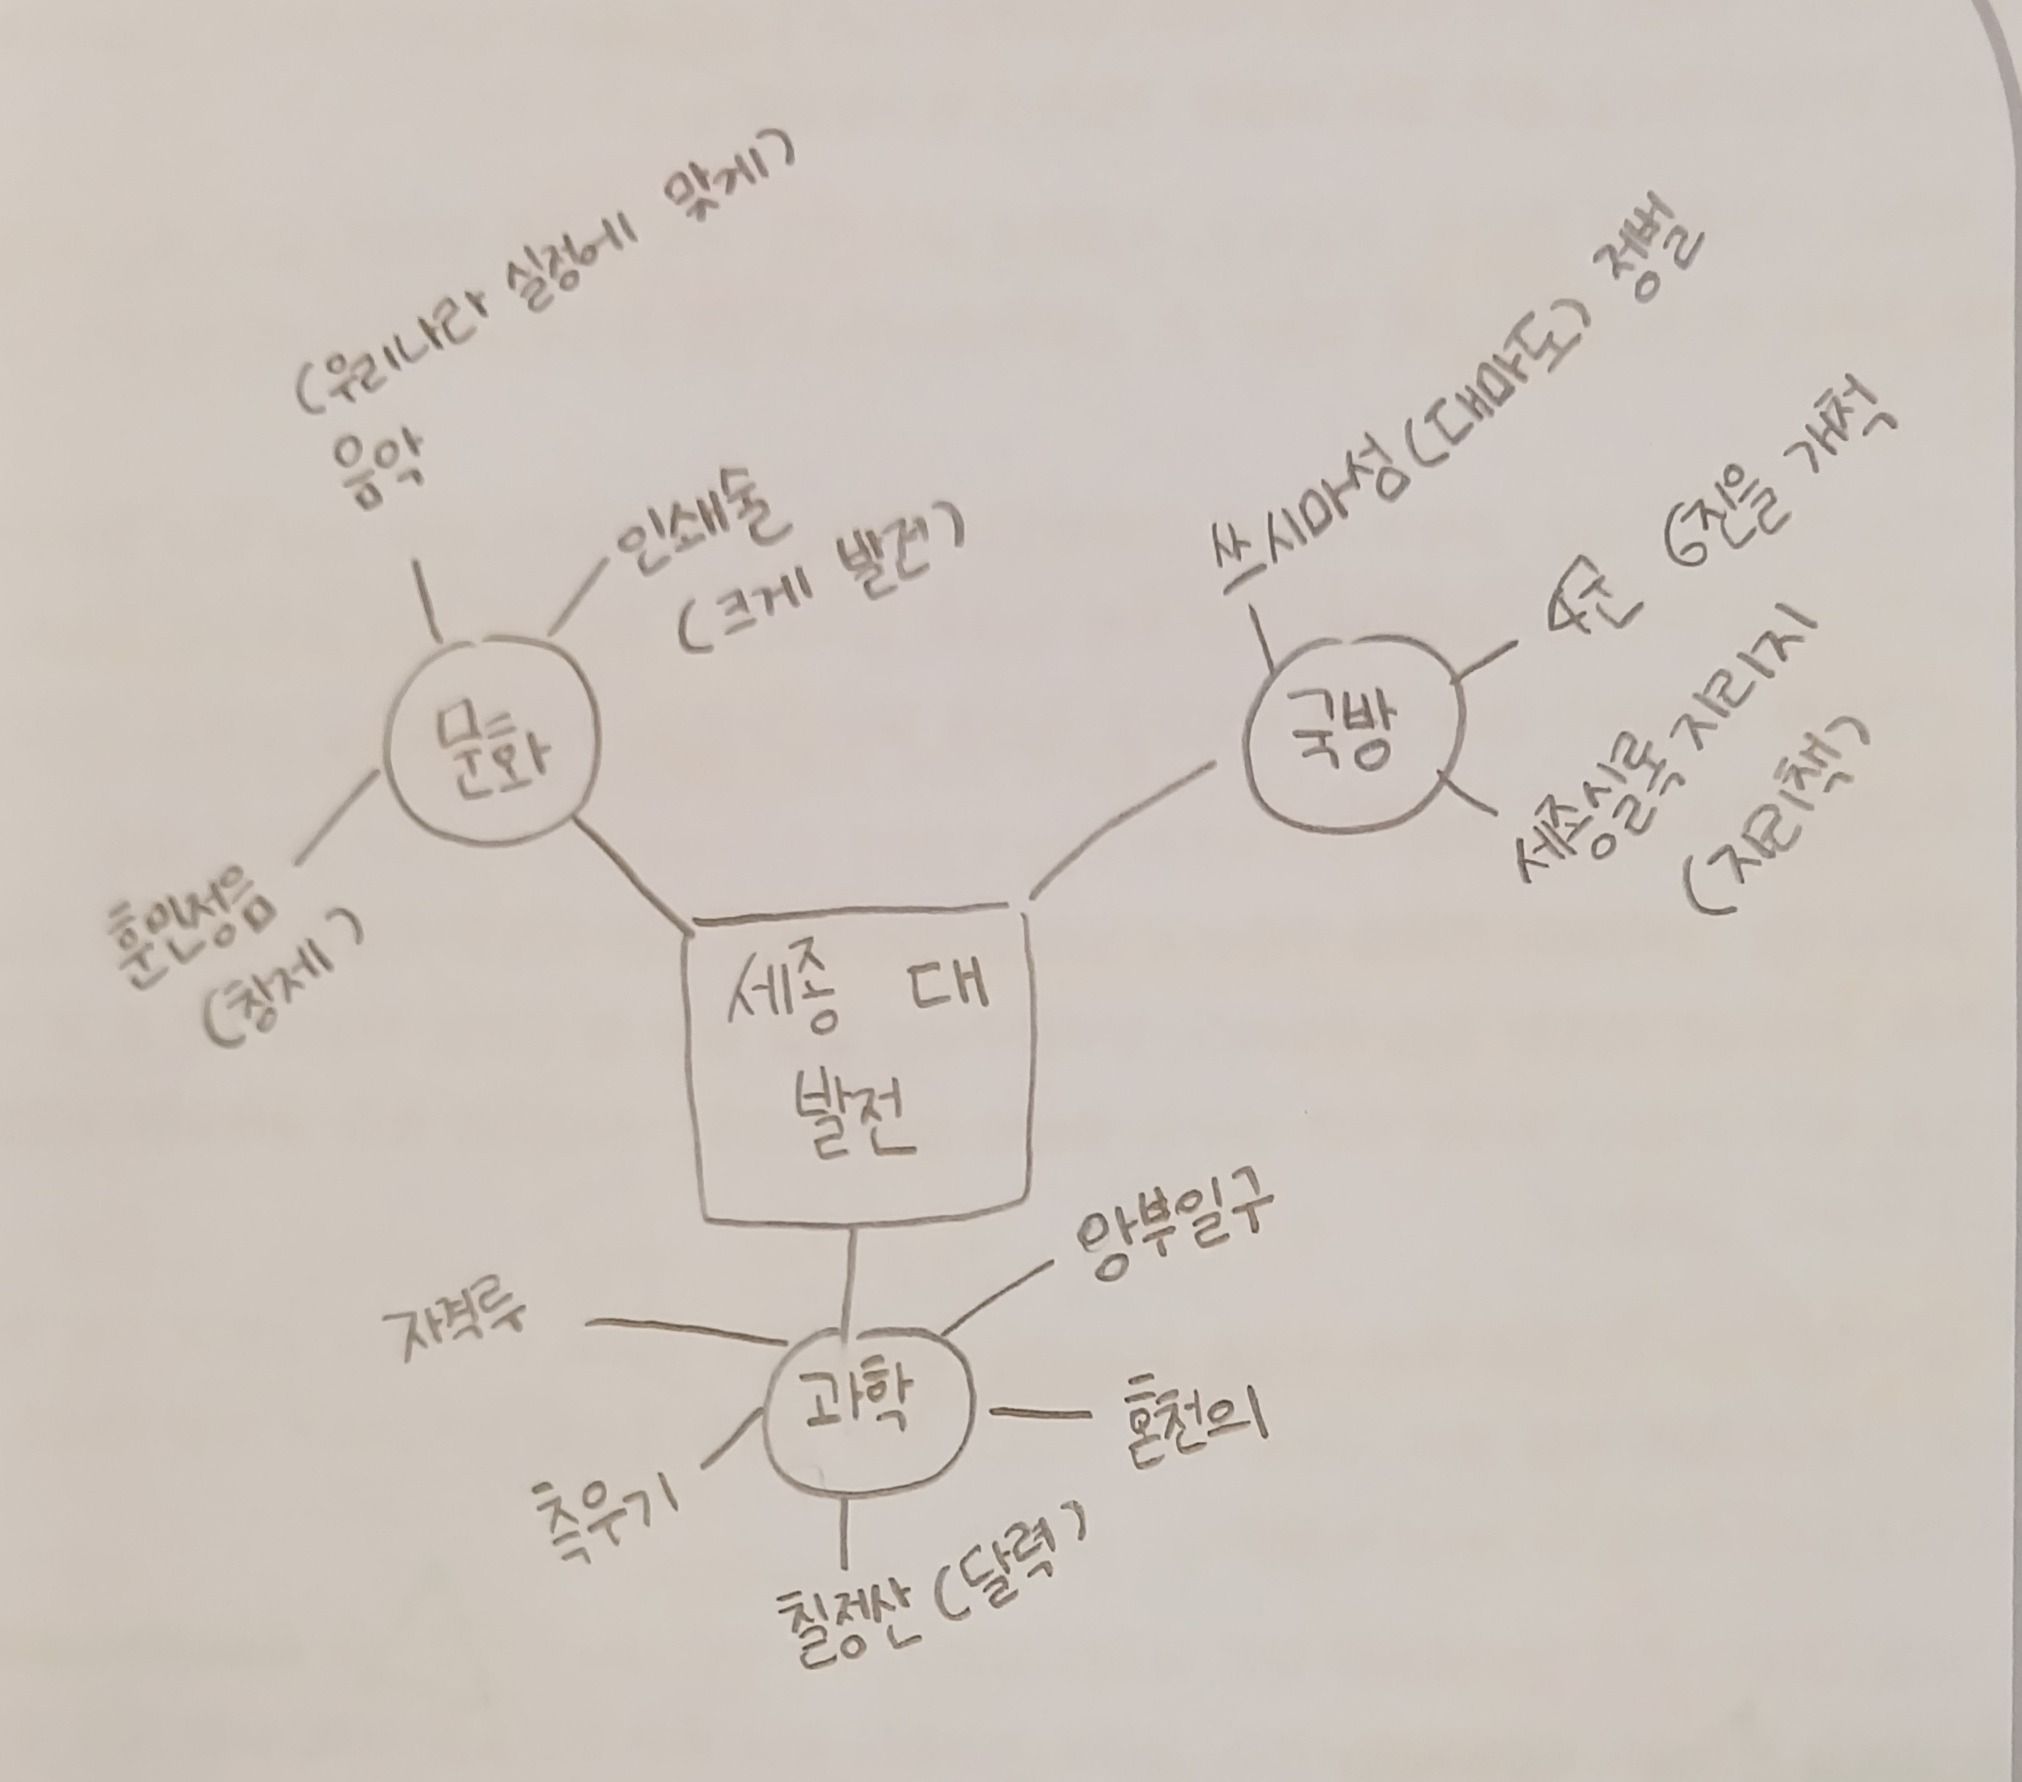 (우리나라 실정에 맞게)
음악
인쇄술
(크게 발전)
문화
훈민정음
(창제)
쓰시마성(대마도) 정벌
4군 6진을 개척
국방
세종실록 지리지
(지리책)
세종 대
발전
자격루
앙부일구
과학
혼천의
측우기
칠정산(달력)